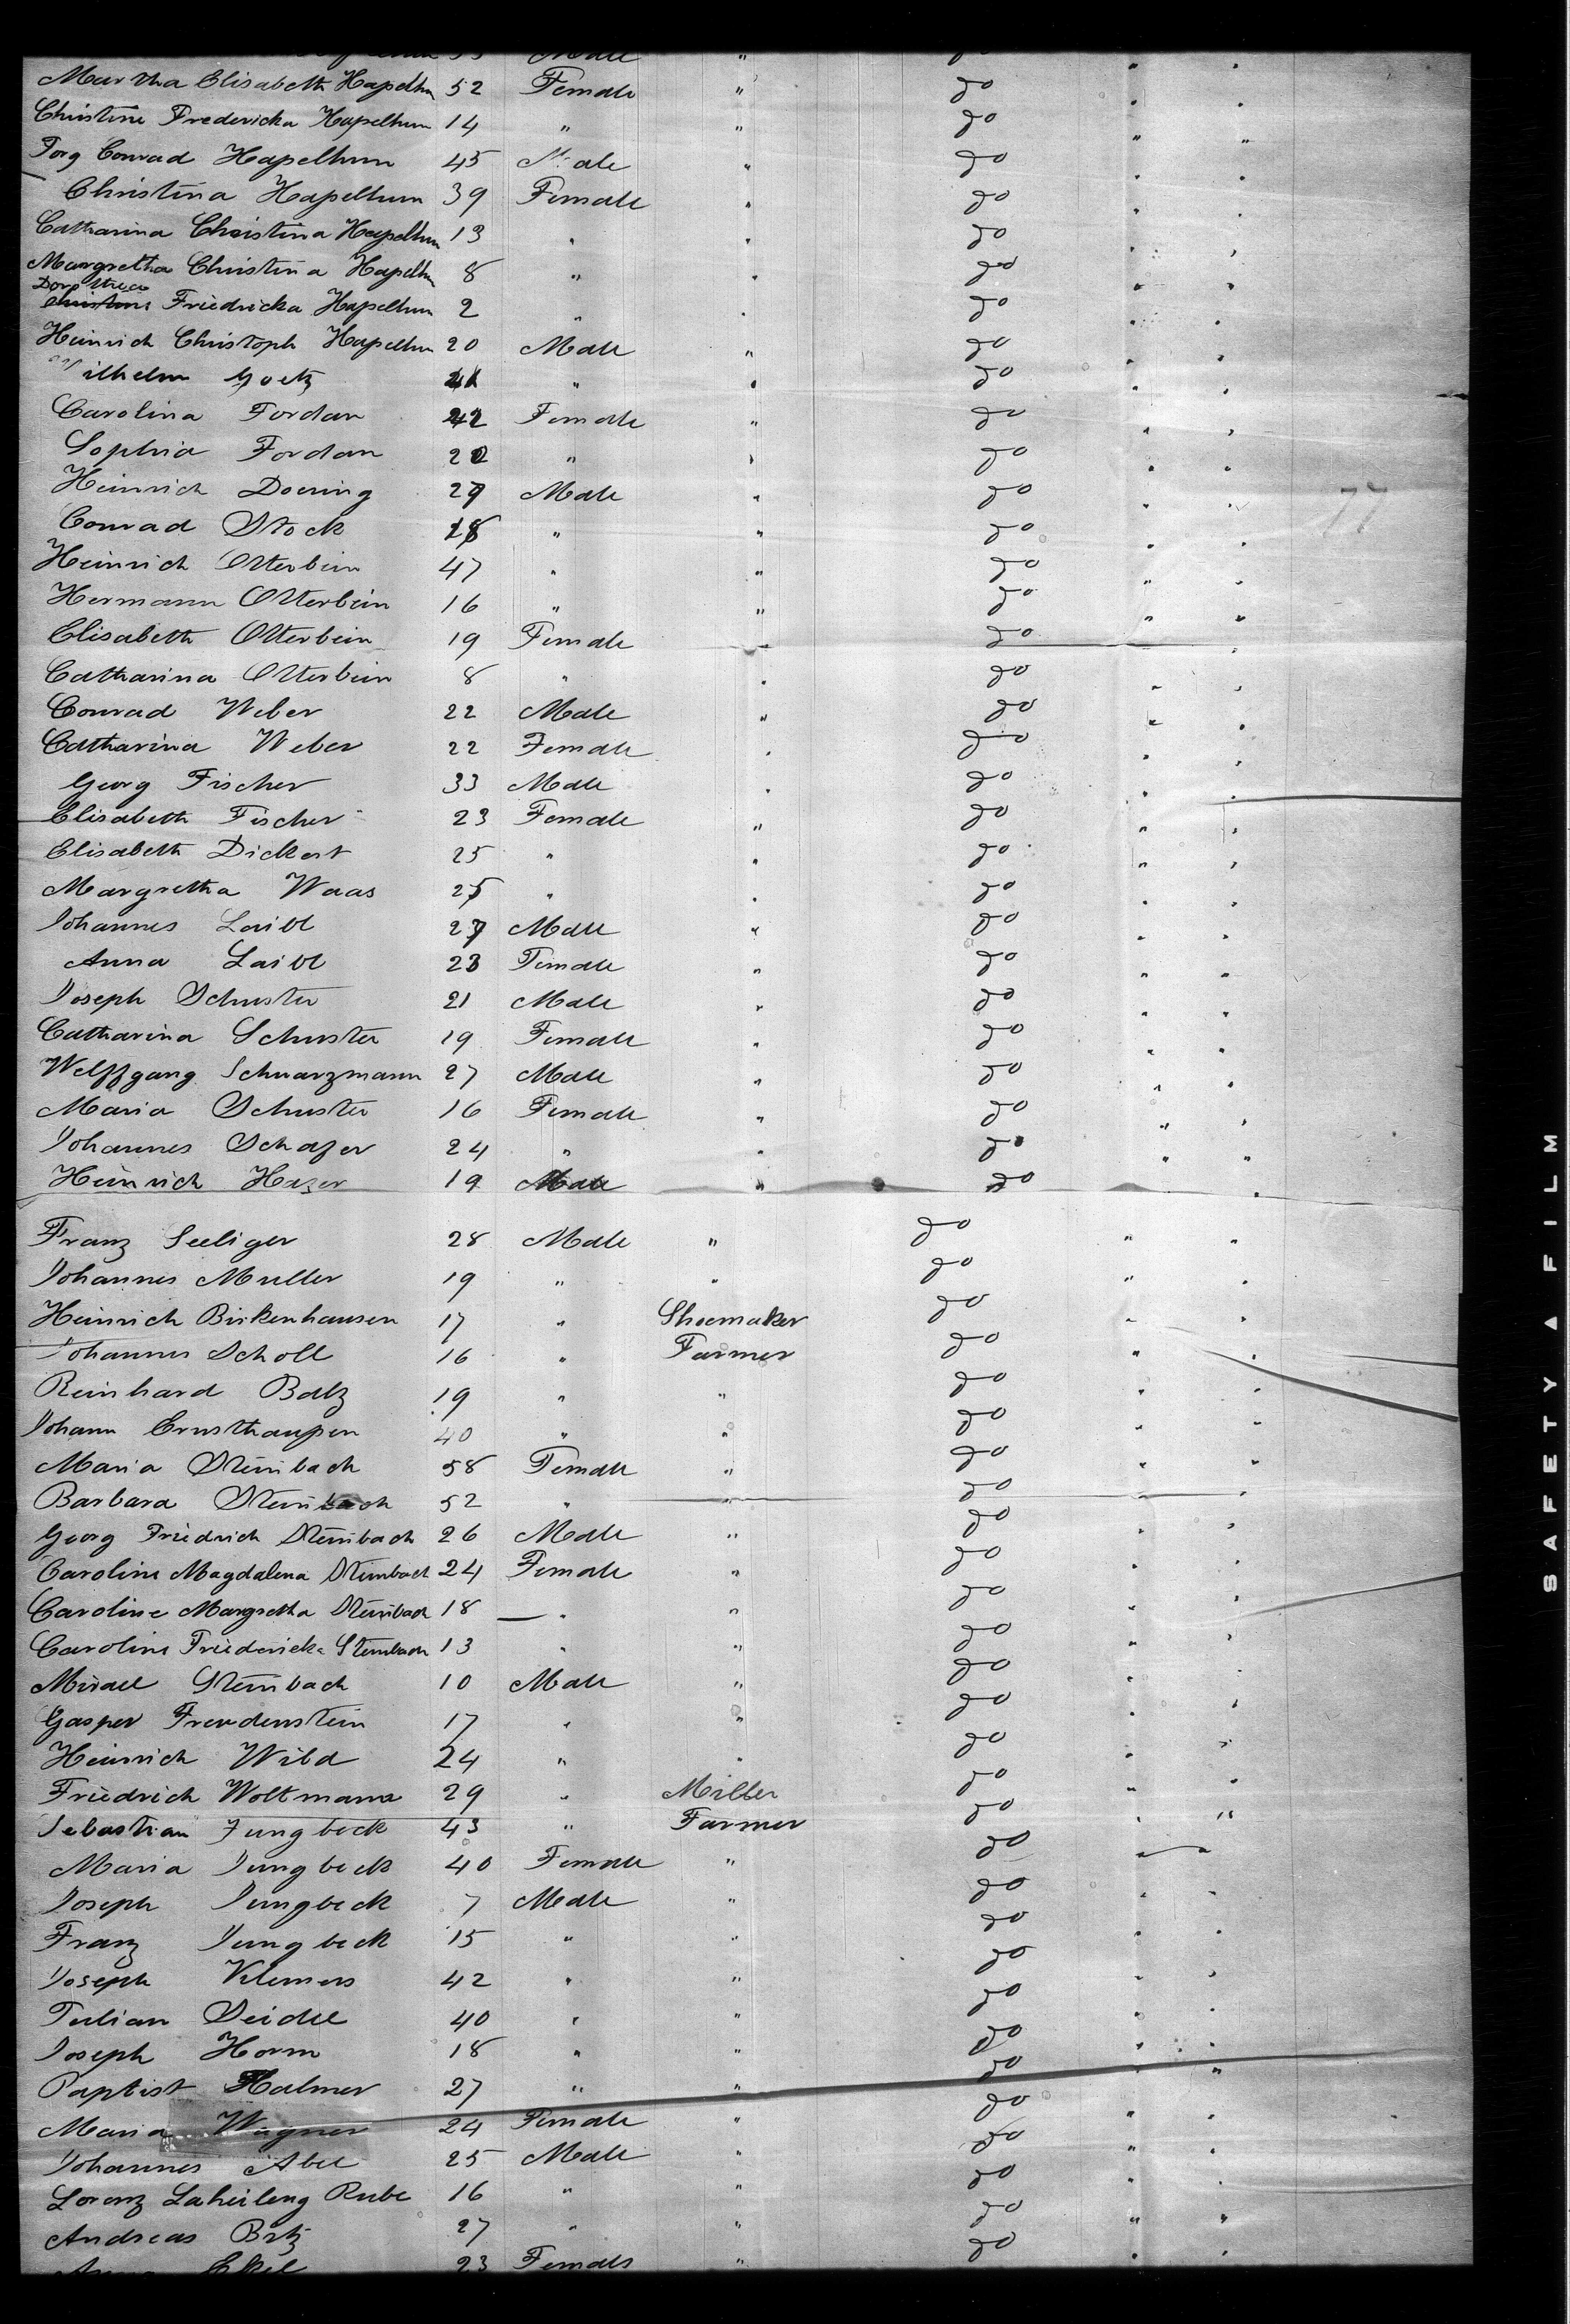 Male " do " "
Martha Elisabeth Hapelhum 52 Female " do " "
Christine Fredericka Hapelhum 14 " " do " "
Jorg Conrad Hapelhum 45 Male " do " "
Christina Hapelhum 39 Female " do " "
Catharina Christina Hapelhum 13 " " do " "
Margretha Christina Hapelhum 8 " " do " "
Dorothea
Christine Friedricka Hapelhum 2 " " do " "
Heinrich Christoph Hapelhum 20 Male " do " "
Wilhelm Goetz " " do " "
Carolina Jordan 42 Female " do " "
Sophia Jordan 22 " " do " "
Heinrich Doering 27 Male " do " "
Conrad Stock 18 " " do " "
Heinrich Otterbein 47 " " do " "
Hermann Otterbein 16 " " do " "
Elisabeth Otterbein 19 Female " do " "
Catharina Otterbein 8 " " do " "
Conrad Weber 22 Male " do " "
Catharina Weber 22 Female " do " "
Georg Fischer 33 Male " do " "
Elisabeth Fischer 23 Female " do " "
Elisabeth Dickert 25 " " do " "
Margretha Waas 25 " " do " "
Johannes Laibl 27 Male " do " "
Anna Laibl 23 Female " do " "
Joseph Schuster 21 Male " do " "
Catharina Schuster 19 Female " do " "
Wolffgang Schwarzmann 27 Male " do " "
Maria Schuster 16 Female " do " "
Johannes Schafer 24 " " do " "
Heinrich Hazer 19 Male " do " "
Franz Seeliger 28 Male " do " "
Johannes Muller 19 " " do " "
Heinrich Birkenhausen 17 " Shoemaker do " "
Johannes Scholl 16 " Farmer do " "
Reinhard Batz 19 " " do " "
Johann Ernsthaupen 40 " " do " "
Maria Steinbach 58 Female " do " "
Barbara Steinbach 52 " " do " "
Georg Friedrich Steinbach 26 Male " do " "
Caroline Magdalena Steinbach 24 Female " do " "
Caroline Margretha Steinbach 18 " " do " "
Caroline Friedericke Steinbach 13 " " do " "
Michael Steinbach 10 Male " do " "
Gasper Freudenstein 17 " " do " "
Heinrich Wild 24 " " do " "
Friedrich Woltmann 29 " Miller do " "
Sebastian Jungbeck 43 " Farmer do " "
Maria Jungbeck 40 Female " do " "
Joseph Jungbeck 7 Male " do " "
Franz Jungbeck 15 " " do " "
Joseph Klemens 42 " " do " "
Julian Seidel 40 " " do " "
Joseph Horm 18 " " do " "
Paptist Halmer 27 " " do " "
Maria Wagner 24 Female " do " "
Johannes Abel 25 Male " do " "
Lorenz Laheileng Rube 16 " " do " "
Andreas Betz 27 " " do " "
23 Female " do " "
77
SAFETY A FILM